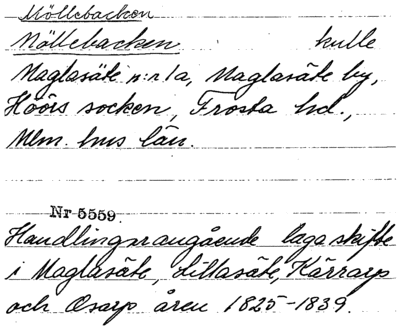 Möllebacken
Möllebacken hulle
Maglasäte n:r 1a, Maglasäte by,
Höörs socken, Frosta hd.,
Mlm. hus län.
Nr 5559.
Handlingar angående laga skifte
i Maglasäte, Lillasäte, Kärrarp
och Osarp åren 1825-1839.